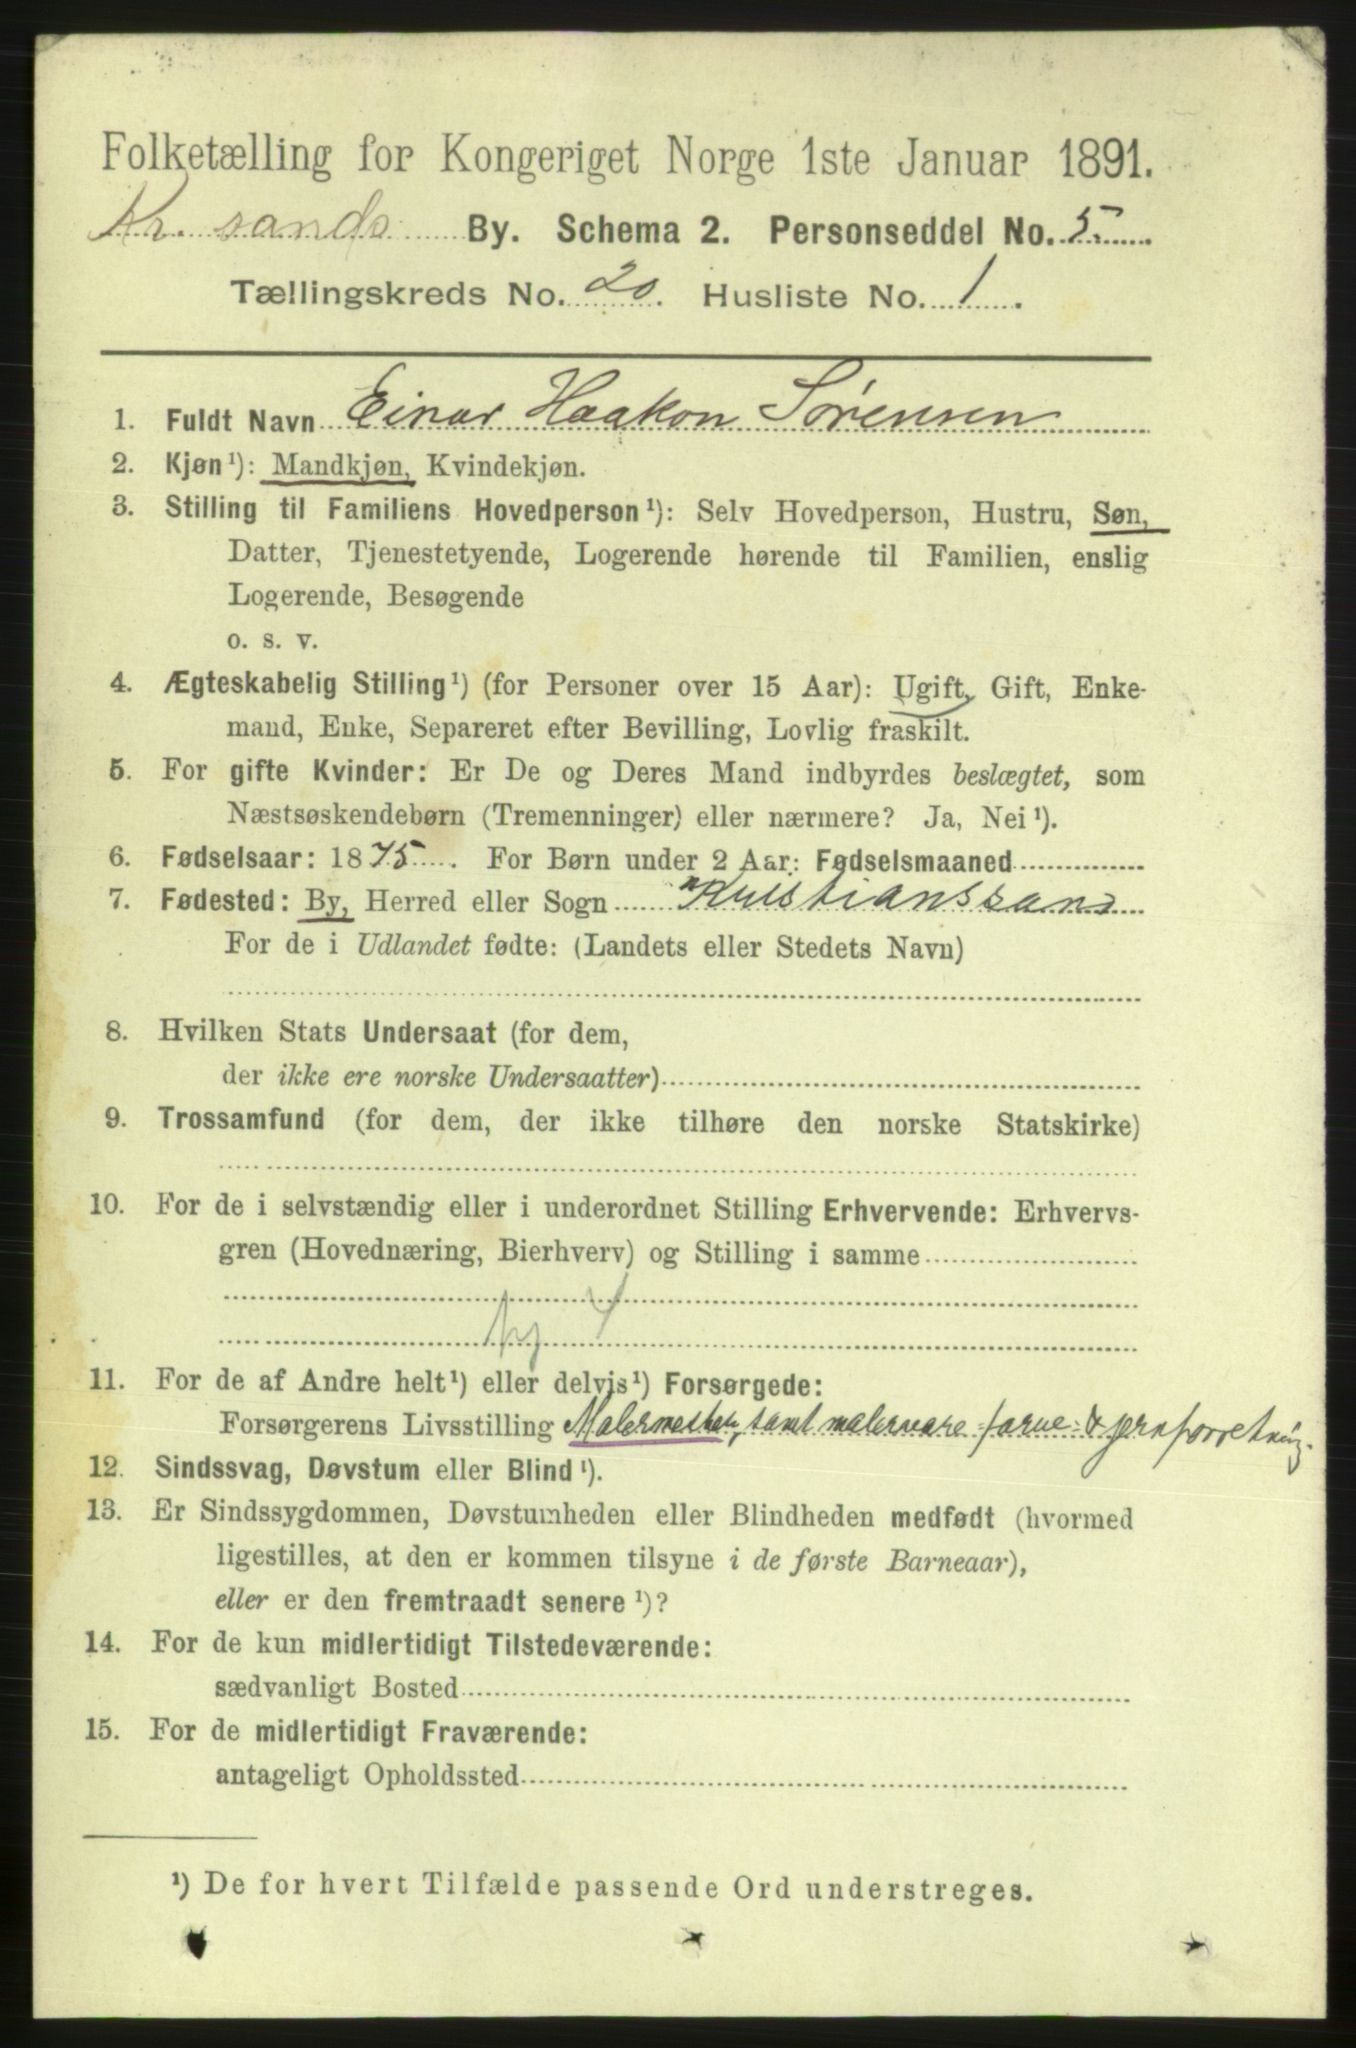 Folketælling for Kongeriget Norge 1ste Januar 1891.
Kr.sands By. Schema 2. Personseddel No. 5.
Tællingskreds No. 20. Husliste No. 1.
1. Fuldt Navn Einar Haakon Sørensen
2. Kjøn¹): Mandkjøn, Kvindekjøn.
3. Stilling til Familiens Hovedperson¹): Selv Hovedperson, Hustru, Søn,
Datter, Tjenestetyende, Logerende hørende til Familien, enslig
Logerende, Besøgende
o. s. v.
4. Ægteskabelig Stilling¹) (for Personer over 15 Aar): Ugift, Gift, Enke-
mand, Enke, Separeret efter Bevilling, Lovlig fraskilt.
5. For gifte Kvinder: Er De og Deres Mand indbyrdes beslægtet, som
Næstsøskendebørn (Tremenninger) eller nærmere? Ja, Nei¹).
6. Fødselsaar: 1875. For Børn under 2 Aar: Fødselsmaaned
7. Fødested: By, Herred eller Sogn Kristianssand
For de i Udlandet fødte: (Landets eller Stedets Navn)
8. Hvilken Stats Undersaat (for dem,
der ikke ere norske Undersaatter)
9. Trossamfund (for dem, der ikke tilhøre den norske Statskirke)
10. For de i selvstændig eller i underordnet Stilling Erhvervende: Erhvervs-
gren (Hovednæring, Bierhverv) og Stilling i samme
11. For de af Andre helt¹) eller delvis¹) Forsørgede:
Forsørgerens Livsstilling Malermester, samt malervare- farve- & jernforretning.
12. Sindssvag, Døvstum eller Blind¹).
13. Er Sindssygdommen, Døvstumheden eller Blindheden medfødt (hvormed
ligestilles, at den er kommen tilsyne i de første Barneaar),
eller er den fremtraadt senere¹)?
14. For de kun midlertidigt Tilstedeværende:
sædvanligt Bosted
15. For de midlertidigt Fraværende:
antageligt Opholdssted
¹) De for hvert Tilfælde passende Ord understreges.